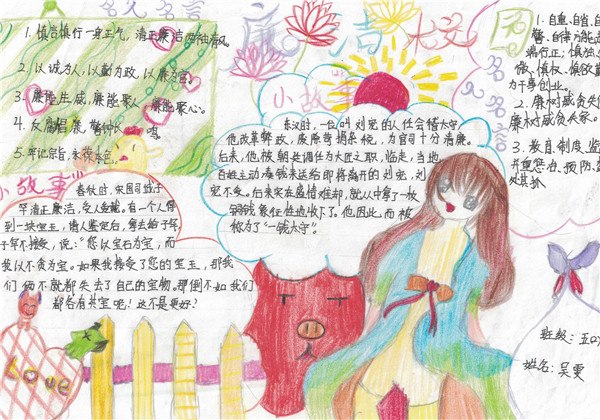 名人名言
1. 慎言慎行一身正气，清正廉洁两袖清风。
2. 以诚为人，以勤为政，以廉为官。
3. 廉能生威，廉能聚人，廉能聚心。
4. 反腐倡廉，警钟长鸣。
5. 牢记宗旨，永葆本色。
小故事
春秋时，宋国司城子
罕清正廉洁，受人爱戴。有一个人得
到一块宝玉，请人鉴定后，拿去给子罕，
子罕不接受，说："您以宝石为宝，而
我以不贪为宝。如果我接受了您的宝玉，那我
们俩不就都失去了自己的宝物，那倒不如我们
都各有其宝呢！这不是更好？
Love
廉
小故事
东汉时，一位叫刘宠的人任会稽太守，
他改革弊政，废除苛捐杂税，为官司十分清廉。
后来，他被朝廷调任为大匠之职，临走，当地
百姓主动凑钱来送给即将离开的刘宠，刘
宠不受。后来实在盛情难却，就从中拿了一枚
铜钱象征性地收下了。他因此而被
称为了"一钱太守"。
名人名言
1. 自重、自省、自
警、自律
端行正；慎独、
微、慎权、慎欲
为干事创业。
2. 廉树威贪失信
廉树威贪失家。
3. 教育制度、监
并重惩治、预防、
班级：五
姓名：吴雯